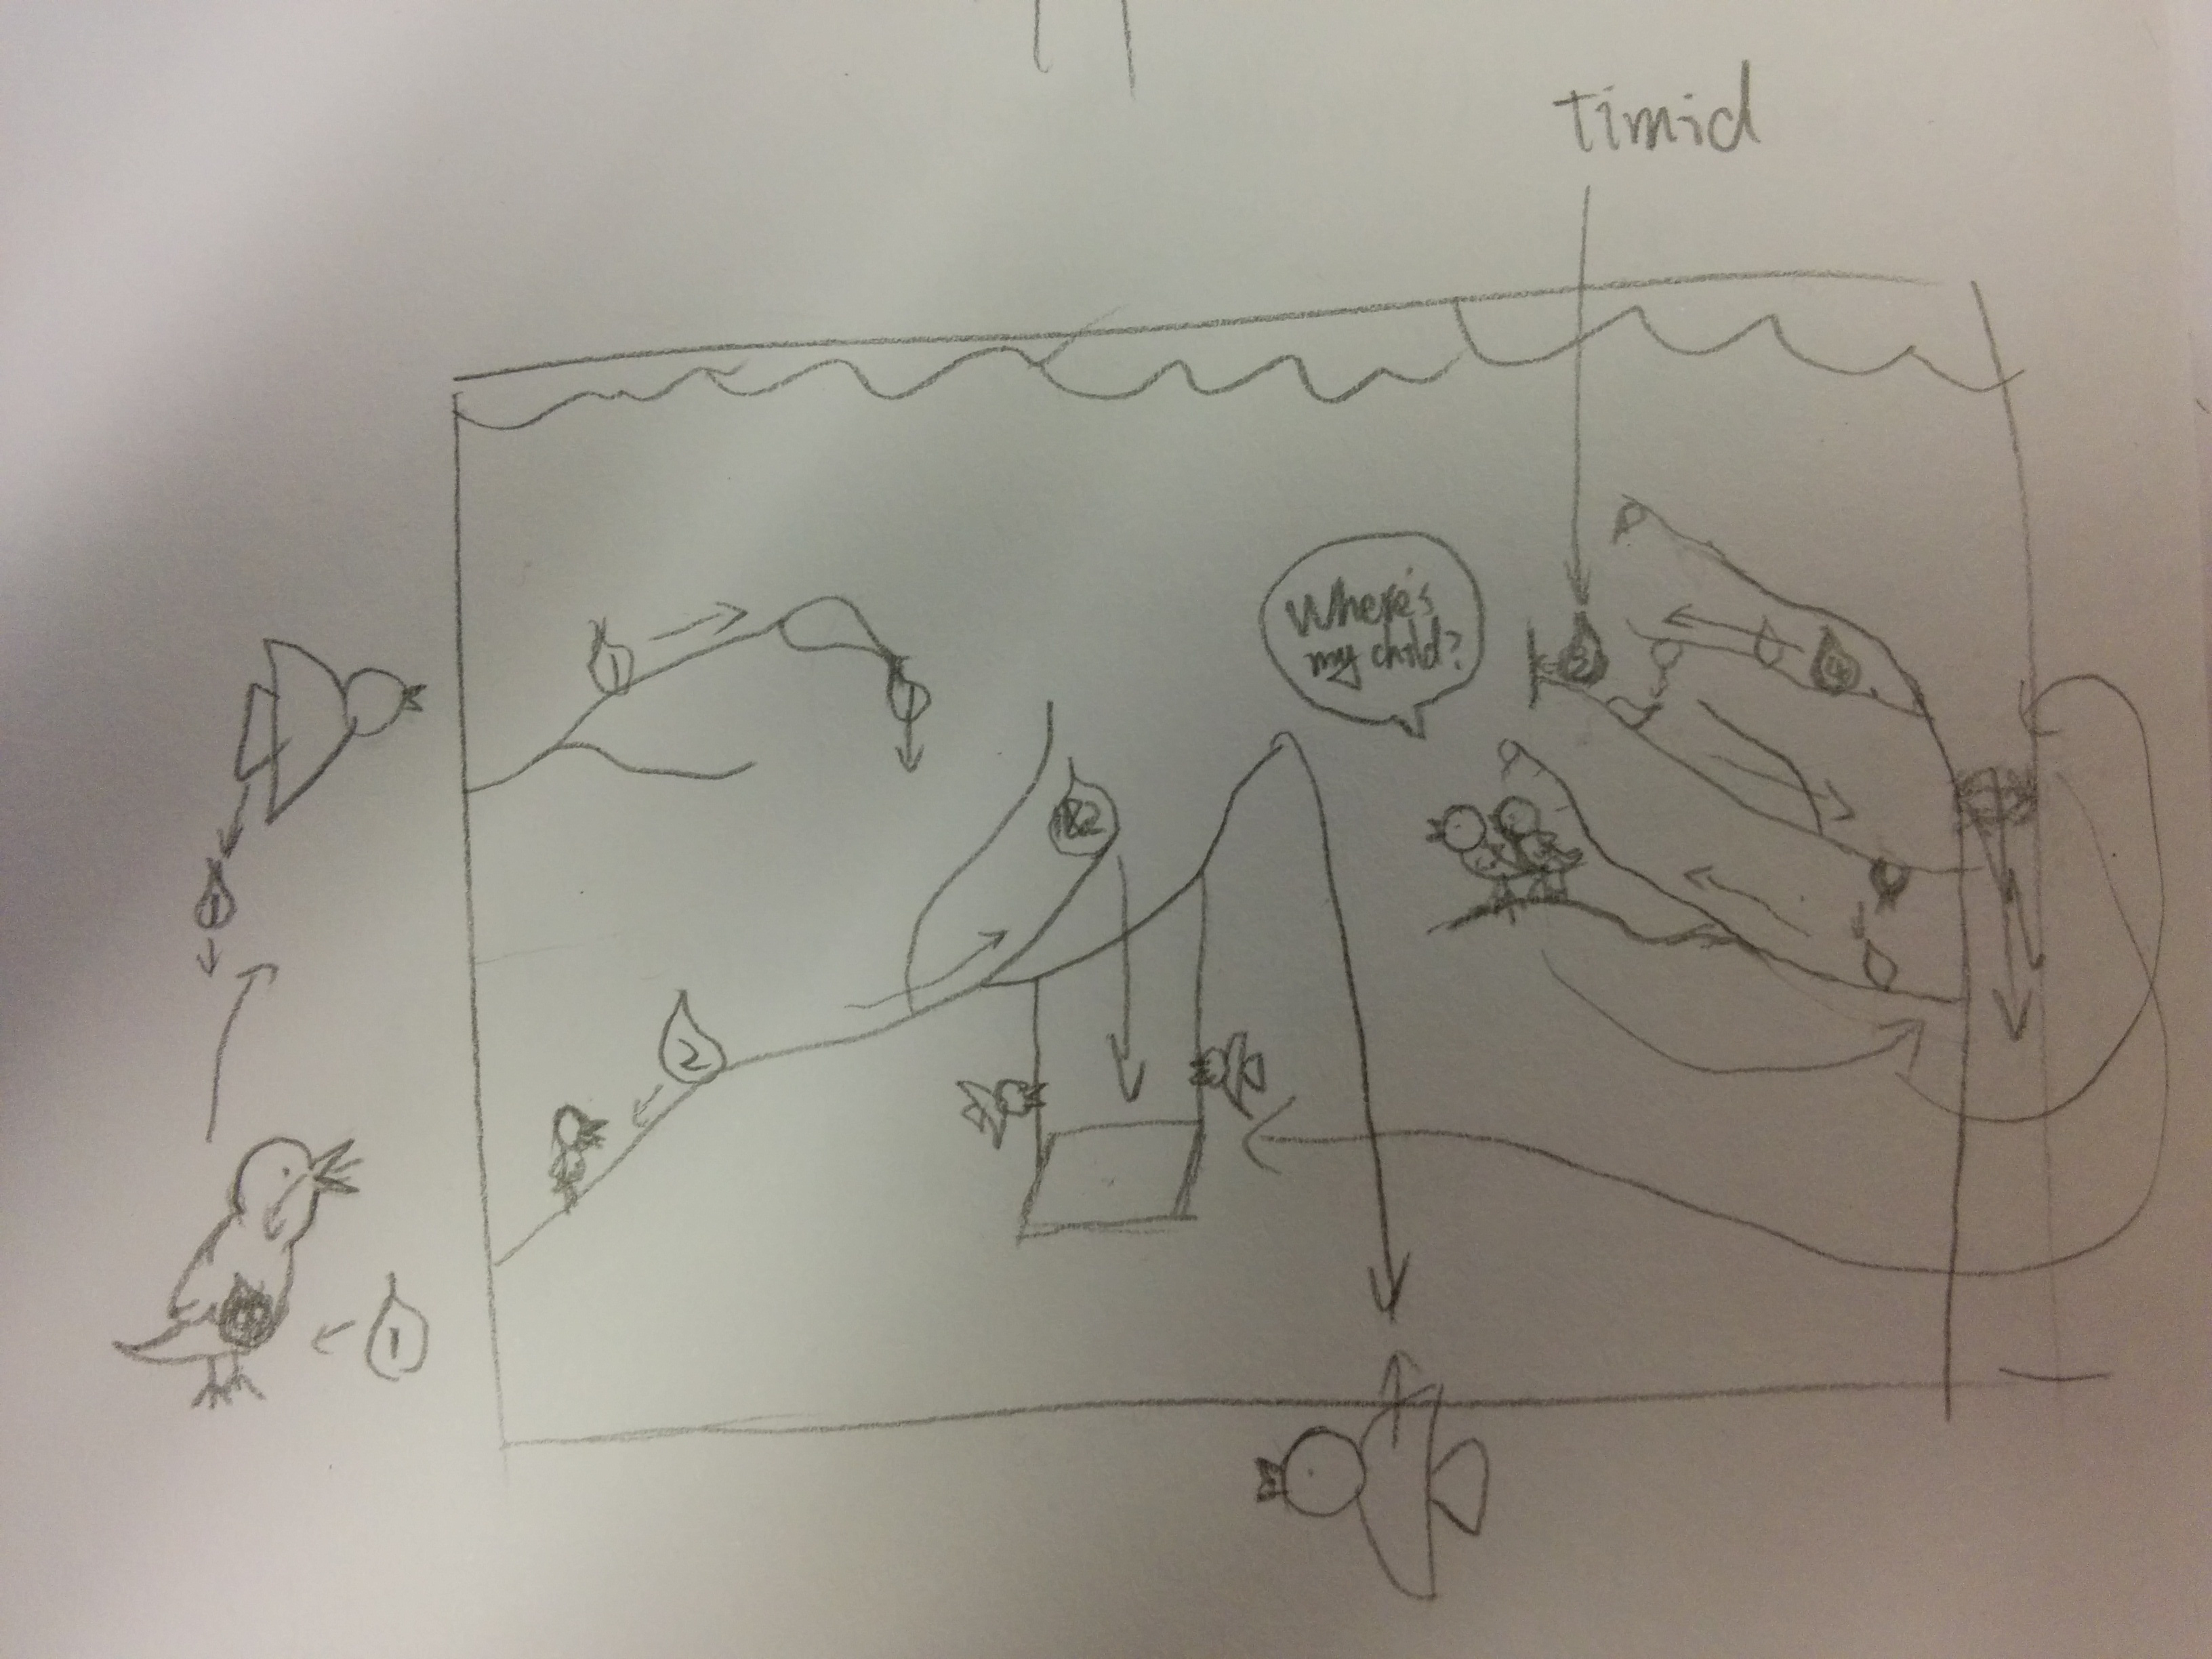 timid
Where's
my child?
1
1
2
1
2
1